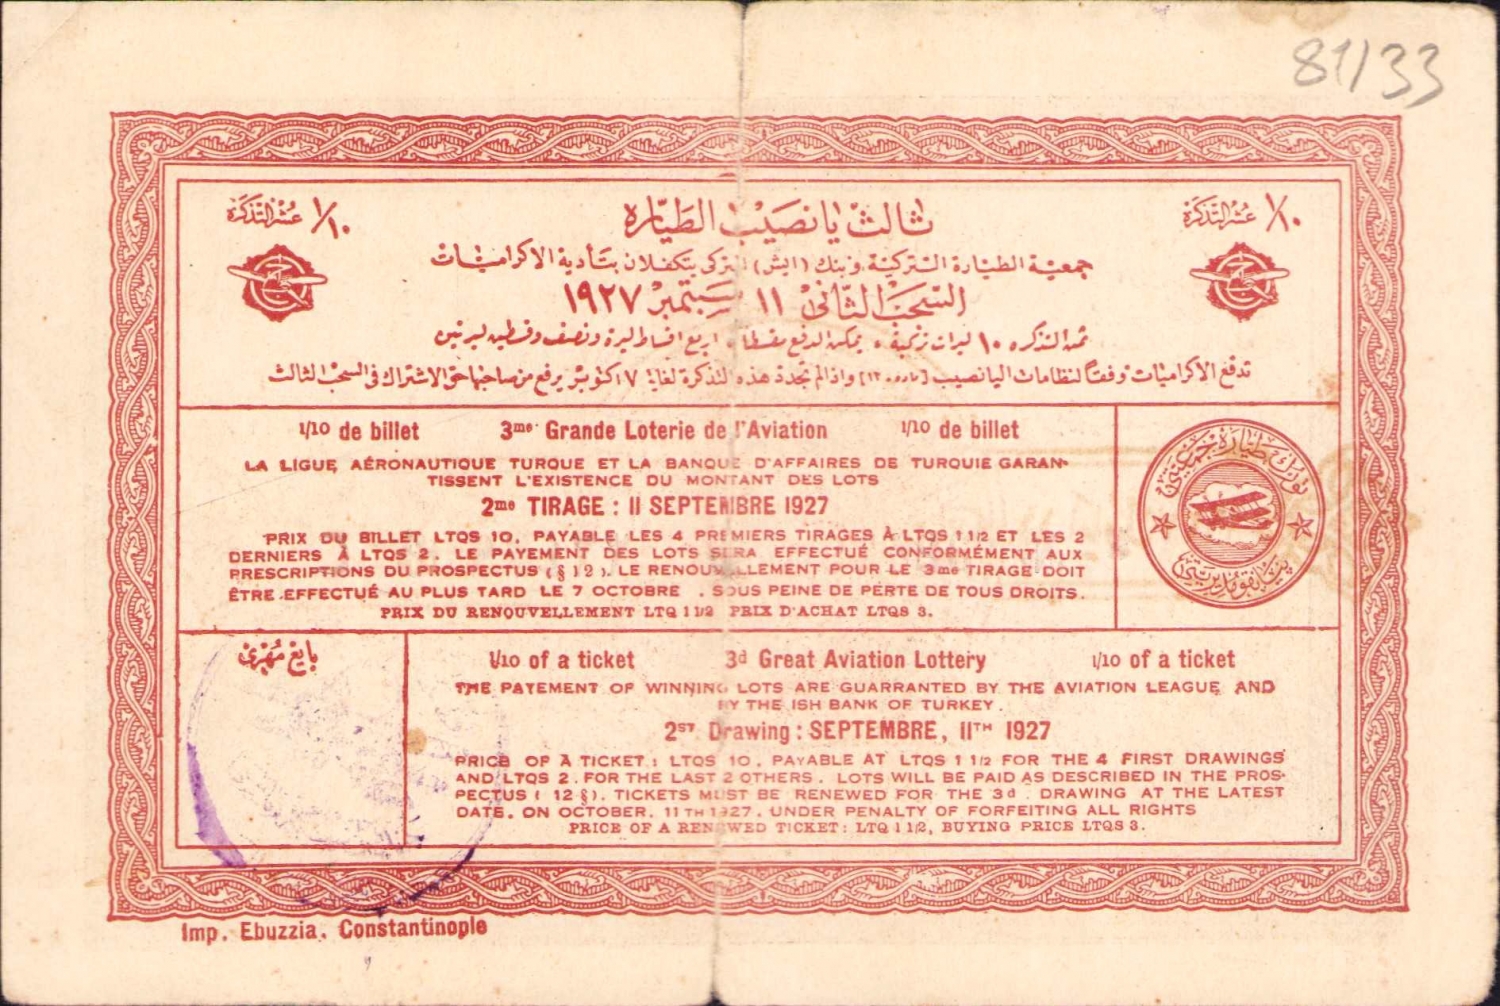 81/33
١/١٠ عشر التذكرة
ثالث يانصيب الطيّاره
١/١٠ عشر التذكرة
جمعية الطيارة التركية وبنك (ايش) التركى يتكفلان بتأدية الاكراميات
السحب الثانى ١١ سبتمبر ١٩٢٧
ثمن التذكره ١٠ ليرات تركية ، يمكن الدفع مقسطا ، اربع اقساط ليرة ونصف وقسطين ليرتين
تدفع الاكراميات وفقًا لنظامات اليانصيب [ماده ١٢] واذا لم تجدد هذه التذكرة لغاية ٧ اكتوبر يرفع من صاحبها حق الاشتراك فى السحب الثالث
1/10 de billet 3me Grande Loterie de l'Aviation 1/10 de billet
LA LIGUE AÉRONAUTIQUE TURQUE ET LA BANQUE D'AFFAIRES DE TURQUIE GARAN-
TISSENT L'EXISTENCE DU MONTANT DES LOTS
2me TIRAGE : 11 SEPTEMBRE 1927
PRIX DU BILLET LTQS 10, PAYABLE LES 4 PREMIERS TIRAGES À LTQS 1 1/2 ET LES 2
DERNIERS À LTQS 2. LE PAYEMENT DES LOTS SERA EFFECTUÉ CONFORMÉMENT AUX
PRESCRIPTIONS DU PROSPECTUS (§ 12). LE RENOUVELLEMENT POUR LE 3me TIRAGE DOIT
ÊTRE EFFECTUÉ AU PLUS TARD LE 7 OCTOBRE . SOUS PEINE DE PERTE DE TOUS DROITS.
PRIX DU RENOUVELLEMENT LTQ 1 1/2 PRIX D'ACHAT LTQS 3.
تورك طياره جمعيتى
پيانغو مديريتى
بايع مهرى
1/10 of a ticket 3d Great Aviation Lottery 1/10 of a ticket
THE PAYEMENT OF WINNING LOTS ARE GUARRANTED BY THE AVIATION LEAGUE AND
BY THE ISH BANK OF TURKEY.
2ST Drawing : SEPTEMBRE, 11TH 1927
PRICE OF A TICKET : LTQS 10, PAYABLE AT LTQS 1 1/2 FOR THE 4 FIRST DRAWINGS
AND LTQS 2. FOR THE LAST 2 OTHERS. LOTS WILL BE PAID AS DESCRIBED IN THE PROS-
PECTUS ( 12 §). TICKETS MUST BE RENEWED FOR THE 3d DRAWING AT THE LATEST
DATE, ON OCTOBER, 11TH 1927, UNDER PENALTY OF FORFEITING ALL RIGHTS
PRICE OF A RENEWED TICKET: LTQ 1 1/2, BUYING PRICE LTQS 3.
Imp. Ebuzzia. Constantinople